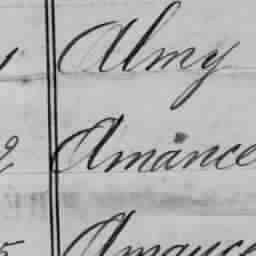 Almy
2 Amance
5 Amance